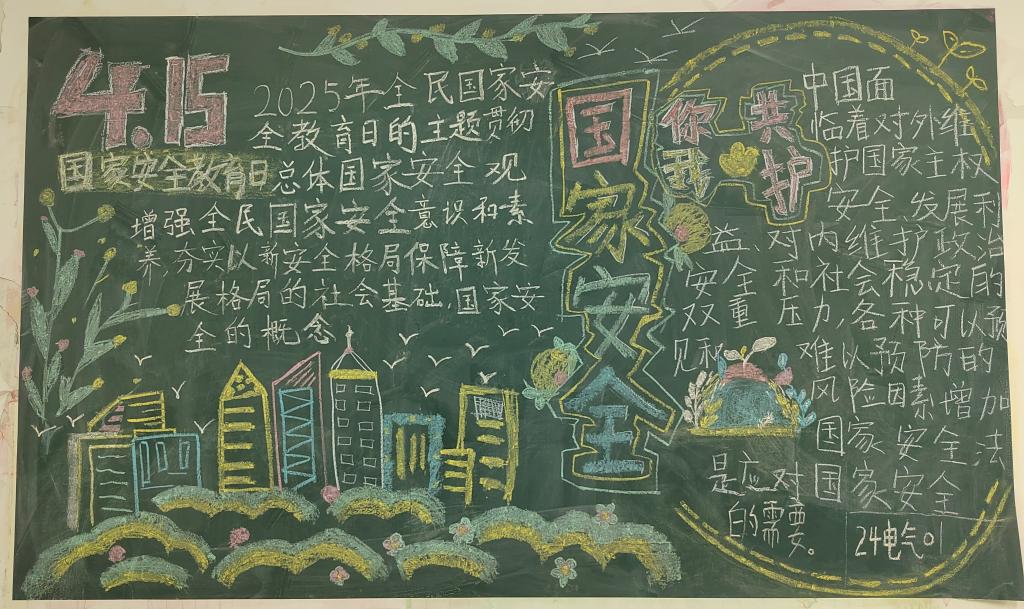 4.15
国家安全教育日
2025年全民国家安
全教育日的主题贯彻
总体国家安全观
增强全民国家安全意识和素
养夯实以新安全格局保障新发
展格局的社会基础,国家安
全的概念
国家安全
你我共护
中国面
临着对外维
护国家主权
安全、发展利
益、对内维护政治
安全和社会稳定的
双重压力,各种可以预
见和难以预防的
风险因素增加
国家安全法
是应对国家安全
的需要。
24电气01